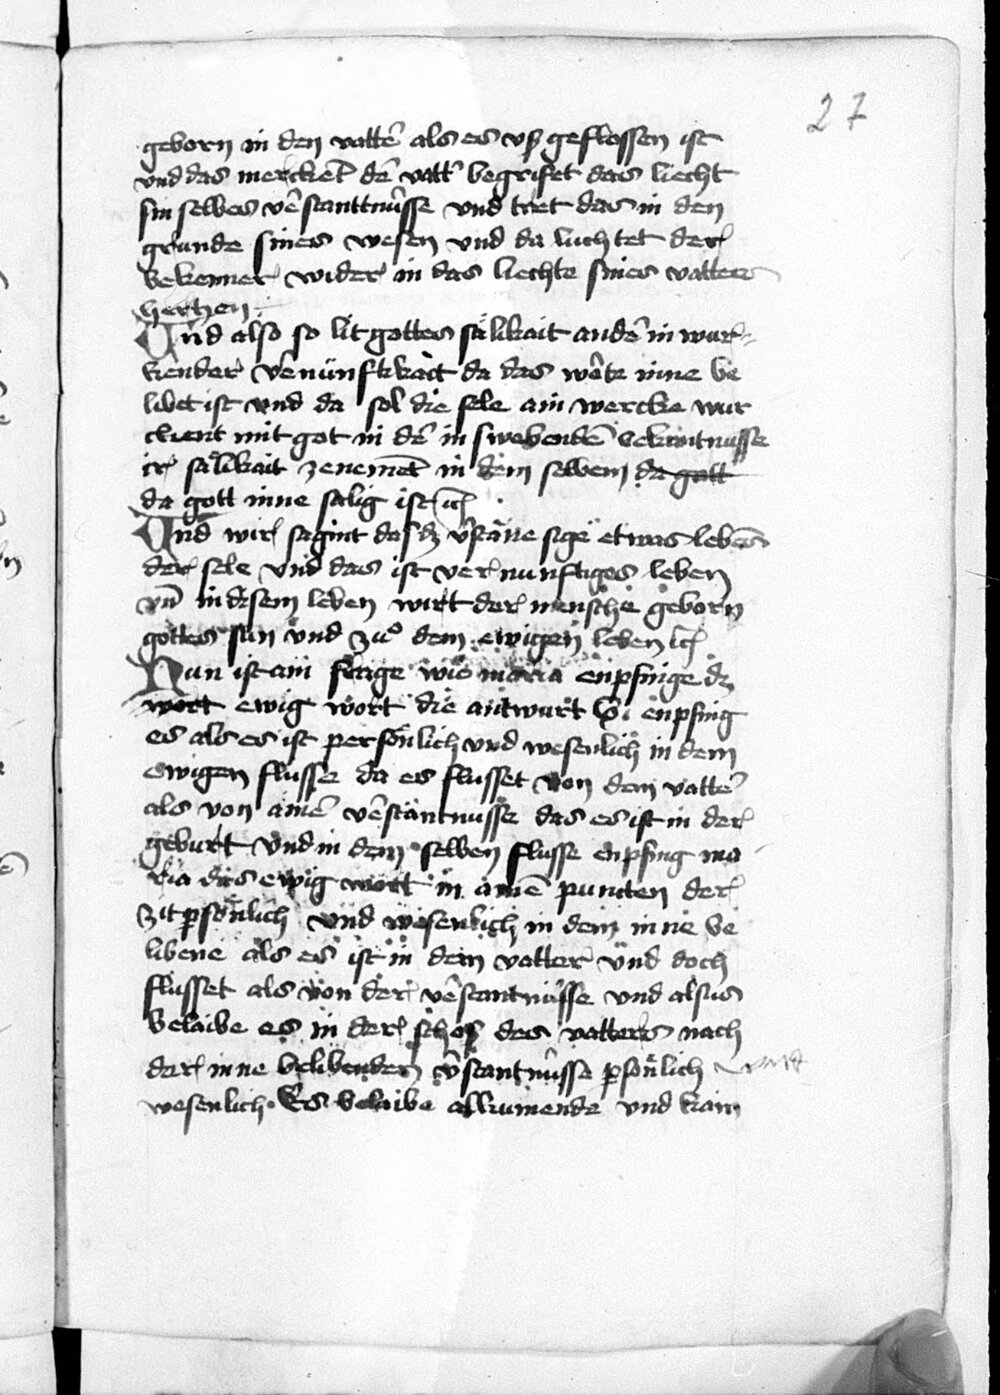 27
geborn in den vattē als es vß geflossen ist
vnd das merckēt dē vatt' begrifet das liecht
sin selbes v̄stanttnüsse vnd tret das in den
grunde sines wesen vnd da luchtet der
bekenner wider in das liechte sines vatters
hertzen
Und also so lit gottes sälikait andē in wur-
kender v̄nünftikait da das wētz inne be
libet ist vnd da sol die sele ain wercke wur
ckent mit got in dē in swebendē bekantnusse
ir sälikait zenemēt in dem selbem da gott
da gott inne salig ist
Und wir sagint das dz v̄stāne sige etwas lebēs
der sele vnd das ist vernunftiges leben
vn̄ in disem leben wirt der mensche geborn
gottes sun vnd zů dem ewigen leben
Nun ist ain frage wie maria enpfinge dz
wort ewig wort die antwurt Si enpfing
es als es ist persönlich vnd wesenlich in dem
ewigen flusse da es flusset von dem vattē
als von ainē v̄stantnusse das es ist in der
geburt vnd in dem selben flusse enpfing ma
ria das ewig wort in ainē puncten der
zit psönlich vnd wesenlich in dem inne be
libene als es ist in dem vatter vnd doch
flusset als von der v̄stantnüsse vnd alsus
belaibe es in der schoß des vatters nach
der inne belibenden v̄stantnüsse psönlich vnd
wesenlich Es belaibe allumende vnd kam